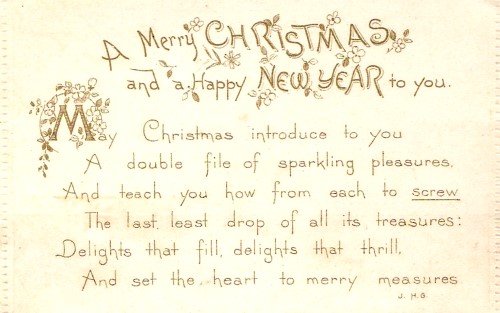 A Merry CHRISTMAS
and a Happy NEW YEAR to you.
May Christmas introduce to you
A double file of sparkling pleasures.
And teach you how from each to screw
The last, least drop of all its treasures:
Delights that fill, delights that thrill,
And set the heart to merry measures
J. H. S.